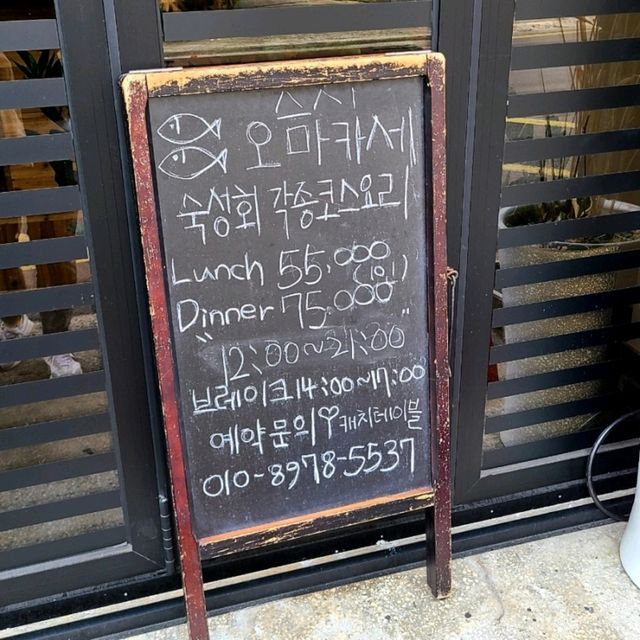 스시
오마카세
숙성회 각종코스요리
Lunch 55.000
(1인)
Dinner 75.000
"12:00~21:00"
브레이크14:00~17:00
예약문의 캐치테이블
010-8978-5537